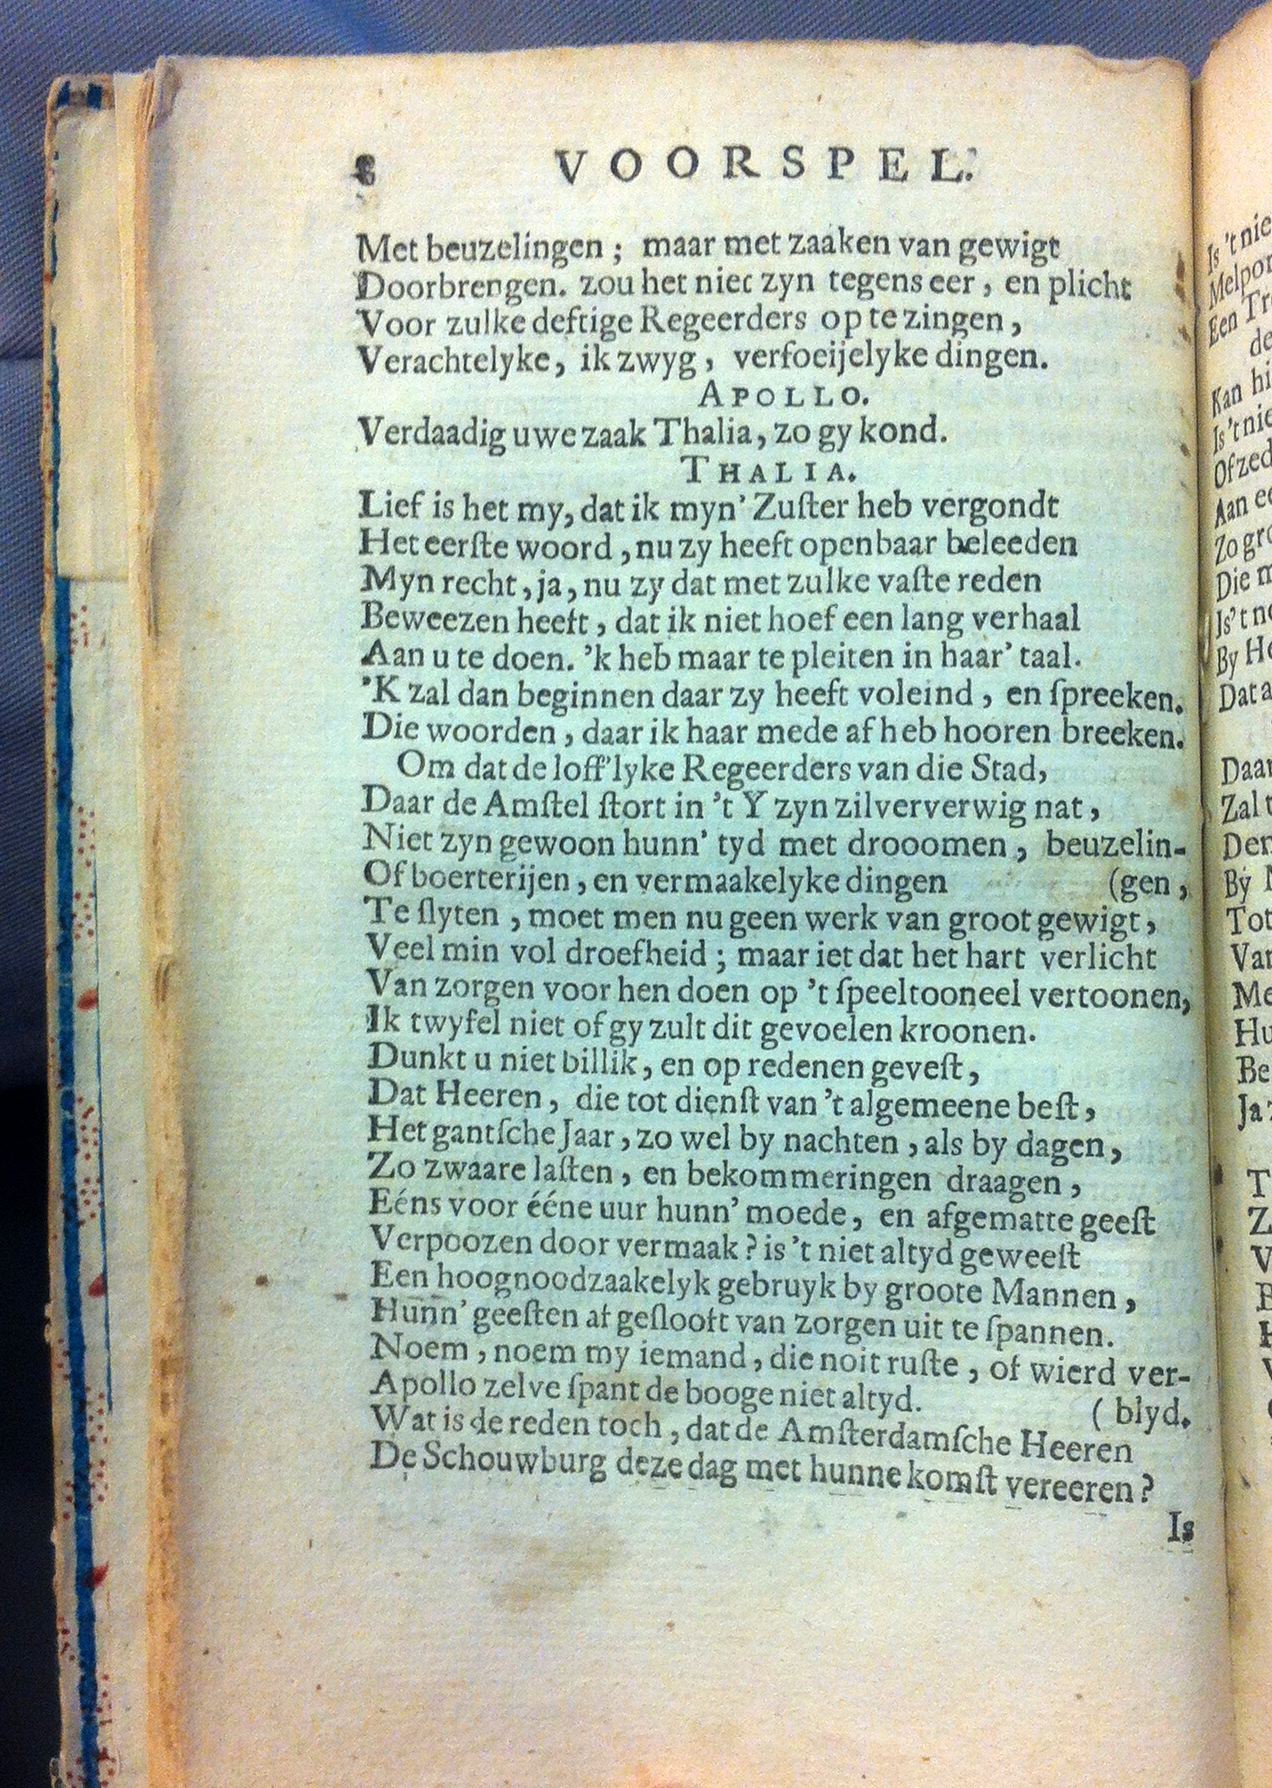 8 VOORSPEL.
Met beuzelingen; maar met zaaken van gewigt
Doorbrengen. zou het niet zyn tegens eer, en plicht
Voor zulke deftige Regeerders op te zingen,
Verachtelyke, ik zwyg, verfoeijelyke dingen.
APOLLO.
Verdaadig uwe zaak Thalia, zo gy kond.
THALIA.
Lief is het my, dat ik myn' Zuſter heb vergondt
Het eerſte woord, nu zy heeft openbaar beleeden
Myn recht, ja, nu zy dat met zulke vaſte reden
Beweezen heeft, dat ik niet hoef een lang verhaal
Aan u te doen. 'k heb maar te pleiten in haar' taal.
'K zal dan beginnen daar zy heeft voleind, en ſpreeken.
Die woorden, daar ik haar mede af heb hooren breeken.
Om dat de loff'lyke Regeerders van die Stad,
Daar de Amſtel ſtort in 't Y zyn zilververwig nat,
Niet zyn gewoon hunn' tyd met drooomen, beuzelin-
Of boerterijen, en vermaakelyke dingen (gen,
Te ſlyten, moet men nu geen werk van groot gewigt,
Veel min vol droefheid; maar iet dat het hart verlicht
Van zorgen voor hen doen op 't ſpeeltooneel vertoonen,
Ik twyfel niet of gy zult dit gevoelen kroonen.
Dunkt u niet billik, en op redenen geveſt,
Dat Heeren, die tot dienſt van 't algemeene beſt,
Het gantſche Jaar, zo wel by nachten, als by dagen,
Zo zwaare laſten, en bekommeringen draagen,
Eéns voor ééne uur hunn' moede, en afgematte geeſt
Verpoozen door vermaak? is 't niet altyd geweeſt
Een hoognoodzaakelyk gebruyk by groote Mannen,
Hunn' geeſten af geſlooft van zorgen uit te ſpannen.
Noem, noem my iemand, die noit ruſte, of wierd ver-
Apollo zelve ſpant de booge niet altyd. (blyd.
Wat is de reden toch, dat de Amſterdamſche Heeren
De Schouwburg deze dag met hunne komſt vereeren?
Is
Is 't nie
Melpor
Een Tr
de
Kan hi
Is 't nie
Of zed
Aan ee
Zo gro
Die m
Is 't no
By He
Dat a
Daar
Zal t
Der
By
Tot
Van
Me
Hu
Be
Ja
T
Z
V